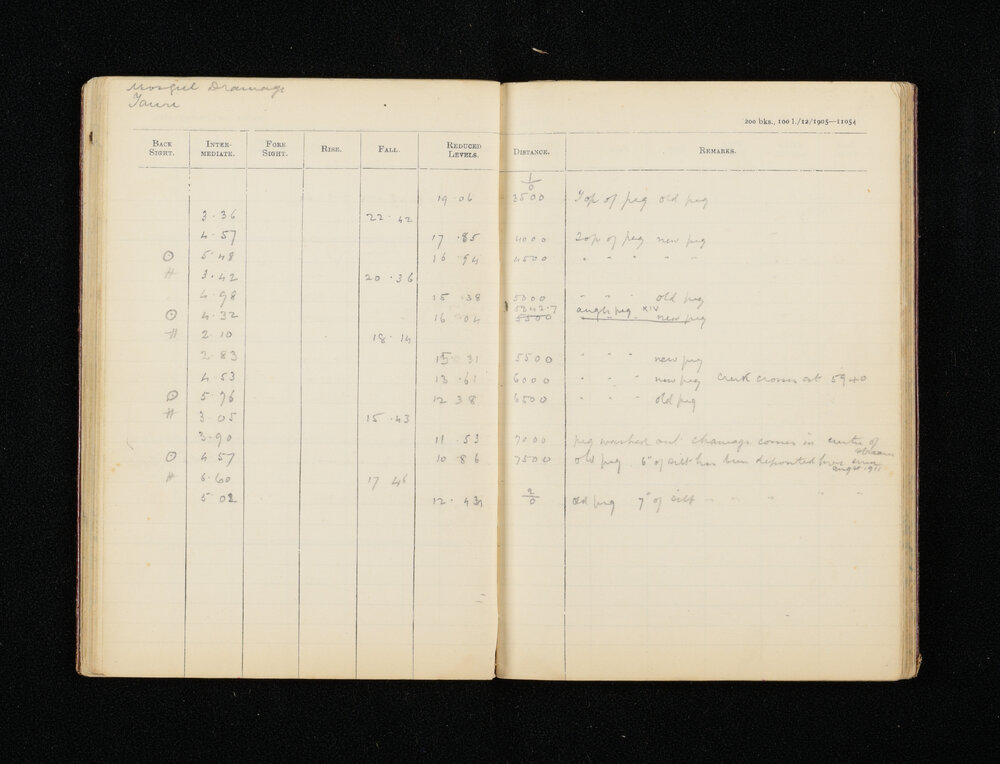 Mosgiel Drainage
Taieri
200 bks., 100 l./12/1905—11054
BACK SIGHT. INTER-MEDIATE. FORE SIGHT. RISE. FALL. REDUCED LEVELS. DISTANCE. REMARKS.
1/0
19.06 3500 Top of peg old peg
3.36 22.42
4.57 17.85 4000 Top of peg new peg
⊙ 5.48 16.94 4500 " " " " "
# 3.42 20.36
4.98 15.38 5000 " " old peg
5342.7 angle peg XIV
⊙ 4.32 16.04 5500 new peg
# 2.10 18.14
2.83 15.31 5500 " " " new peg
4.53 13.61 6000 " " " new peg Creek crosses at 5940
⊙ 5.76 12 38 6500 " " " old peg
# 3.05 15.43
3.90 11.53 7000 peg washed out chainage comes in centre of stream
⊙ 4 57 10.86 7500 old peg 6" of silt has been deposited here since augst 1911
# 6.60 17 46
5.02 12.43 2/0 old peg 7" of silt " " " " "